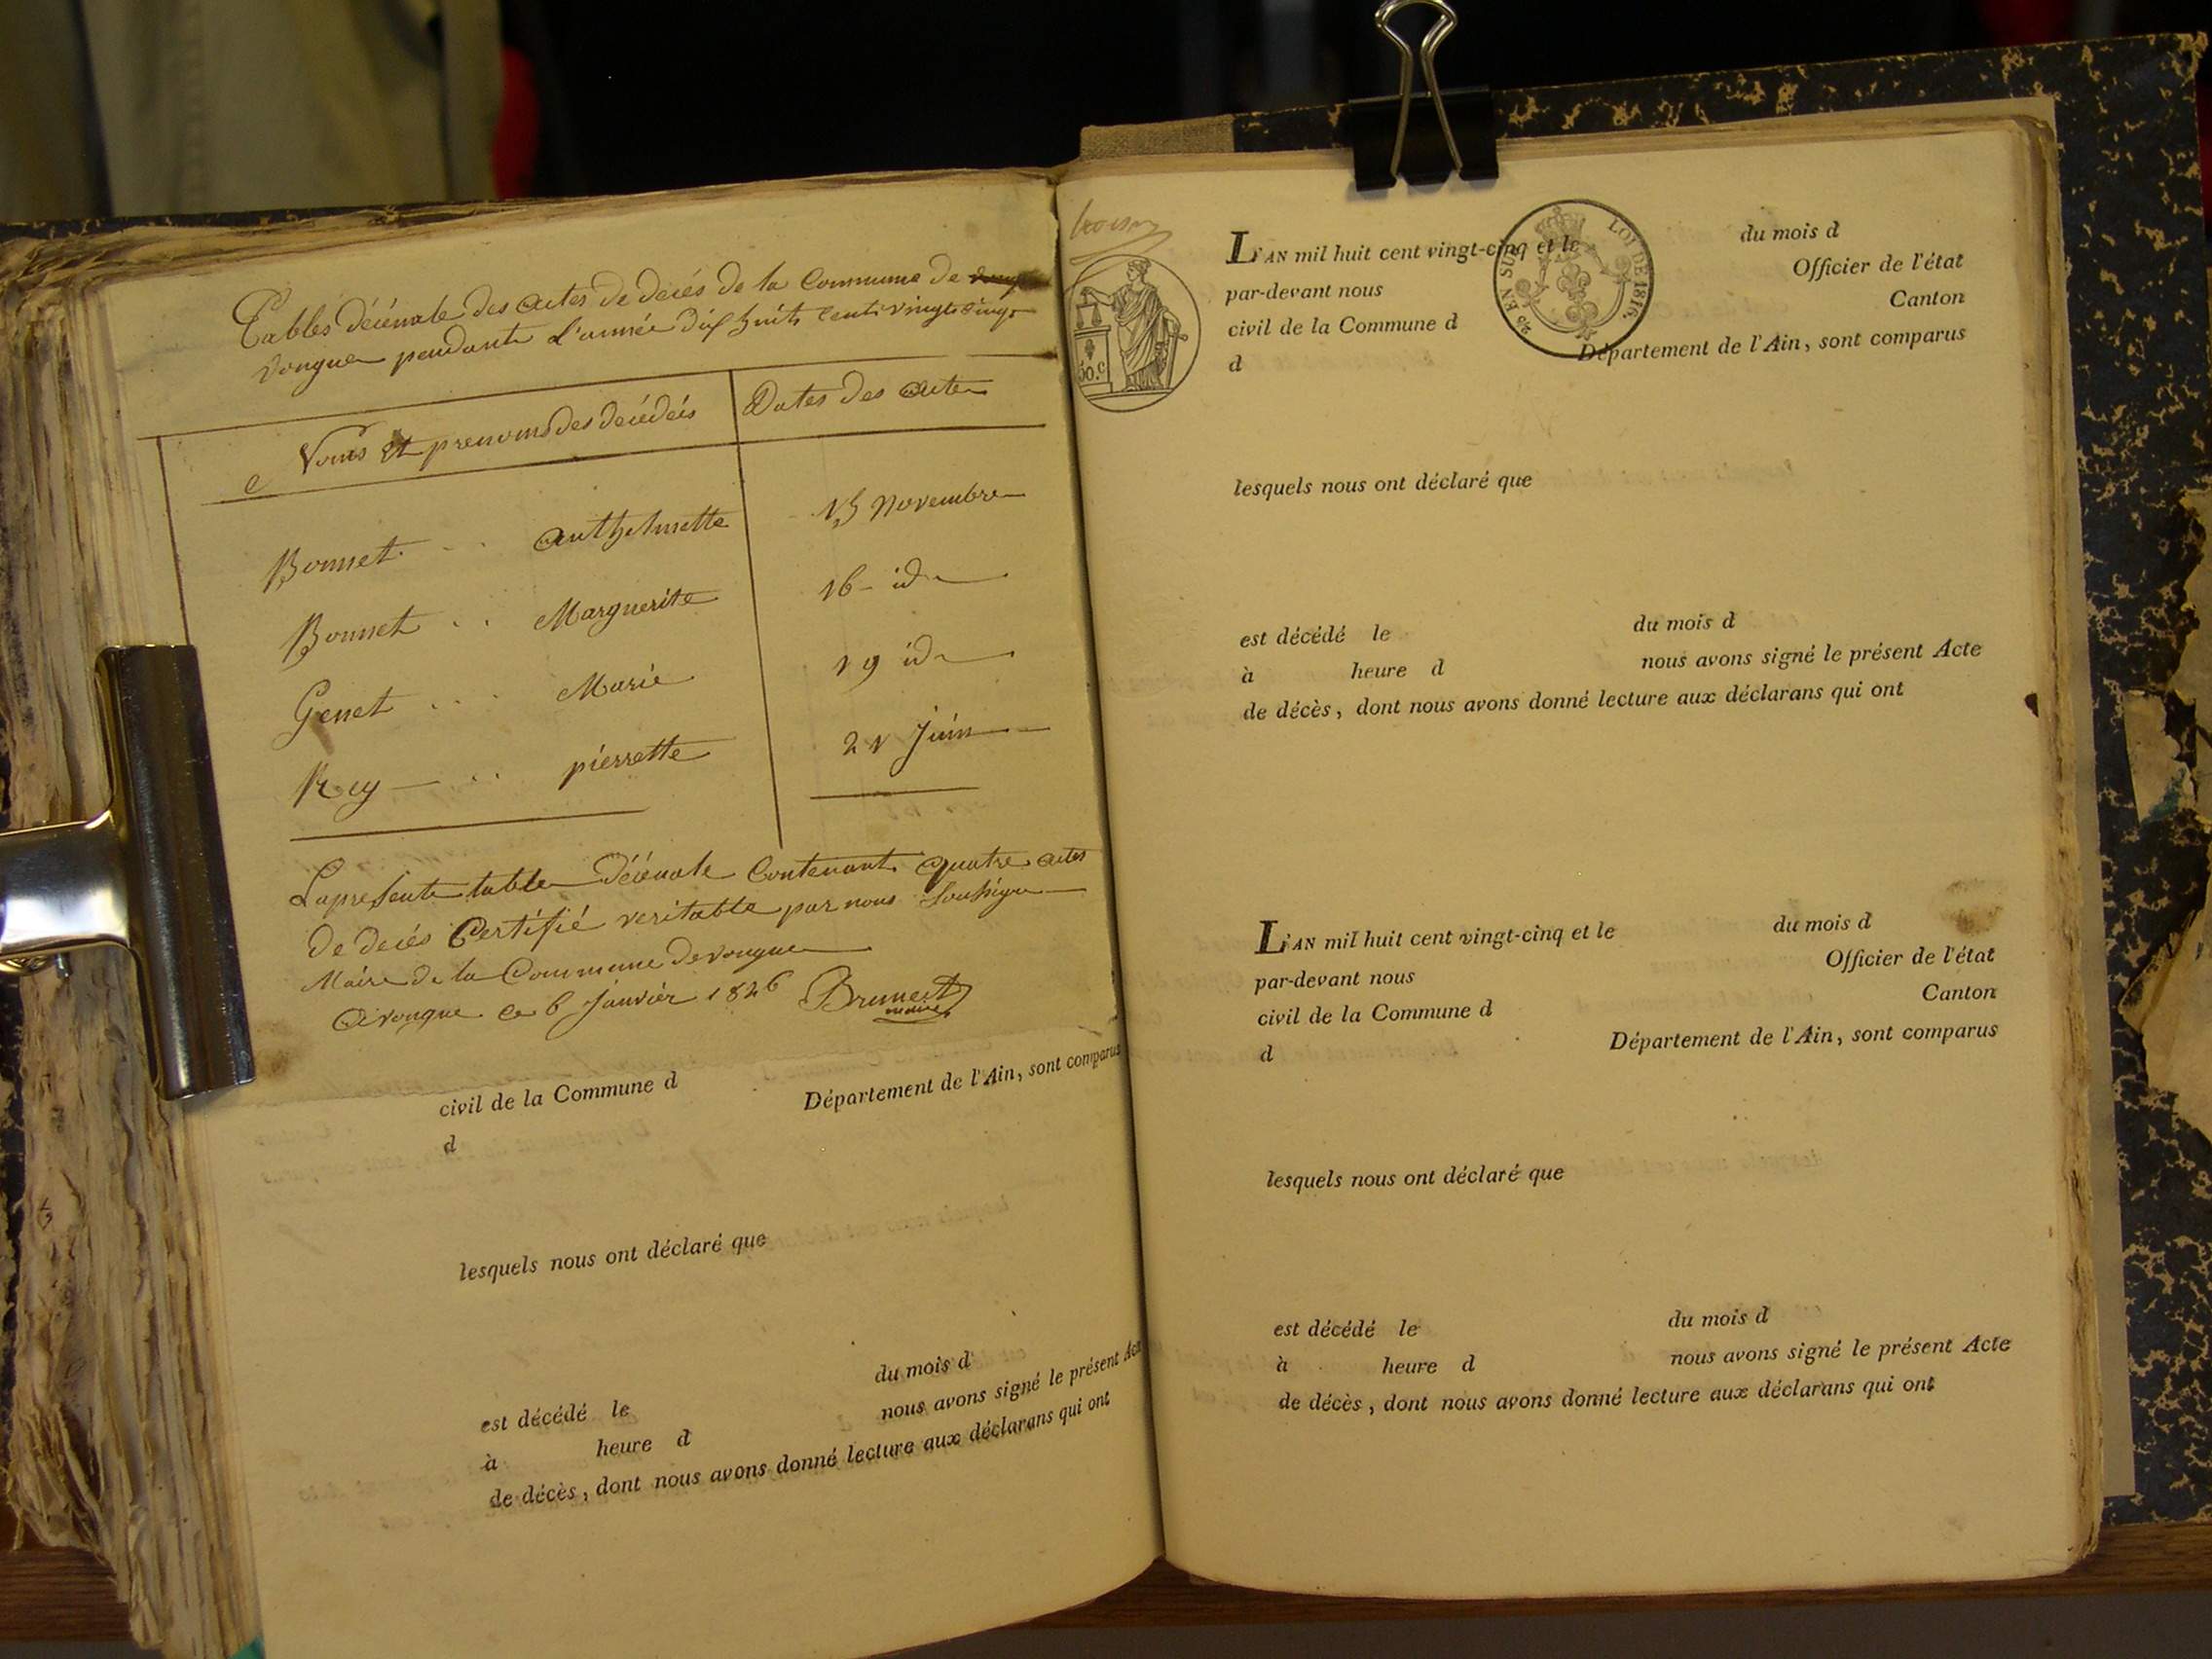 Tables décénale des actes de decés de la Commune de
vongne pendante L'année dix huit cents vingt cinq
Noms Et prenoms des décédés
Dates des actes
Bonnet .. anthelmette 15 Novembre
Bonnet .. Marguerite 16 - id
Genet ... Marie 19 id
Rey .. pierrette 21 Juin
La presente table Décénale Contenant quatre actes
de decés Certifié veritable par nous Soussigne
Maire de la Commune de vongne
a vongne ce 6 Janvier 1826 Brunet
maire
civil de la Commune d
d Département de l'Ain, sont comparus
lesquels nous ont déclaré que
est décédé le du mois d
à heure d nous avons signé le présent Acte
de décès, dont nous avons donné lecture aux déclarans qui ont
50.C
EN SUS
LOI DE 1816.
L'AN mil huit cent vingt-cinq et le du mois d
par-devant nous Officier de l'état
civil de la Commune d Canton
d Département de l'Ain, sont comparus
lesquels nous ont déclaré que
est décédé le du mois d
à heure d nous avons signé le présent Acte
de décès, dont nous avons donné lecture aux déclarans qui ont
L'AN mil huit cent vingt-cinq et le du mois d
par-devant nous Officier de l'état
civil de la Commune d Canton
d Département de l'Ain, sont comparus
lesquels nous ont déclaré que
est décédé le du mois d
à heure d nous avons signé le présent Acte
de décès, dont nous avons donné lecture aux déclarans qui ont